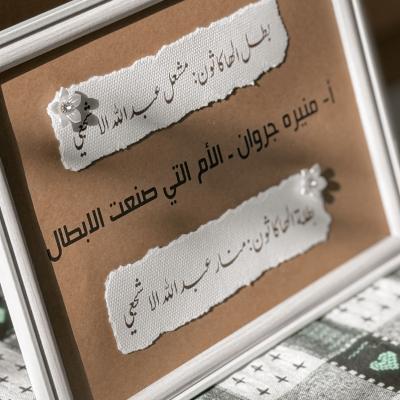 بطل الهاكاثون: مشعل عبدالله الاشجعي
أ- منيره جروان - الأم التي صنعت الابطال
بطلة الهاكاثون: منار عبدالله الاشجعي